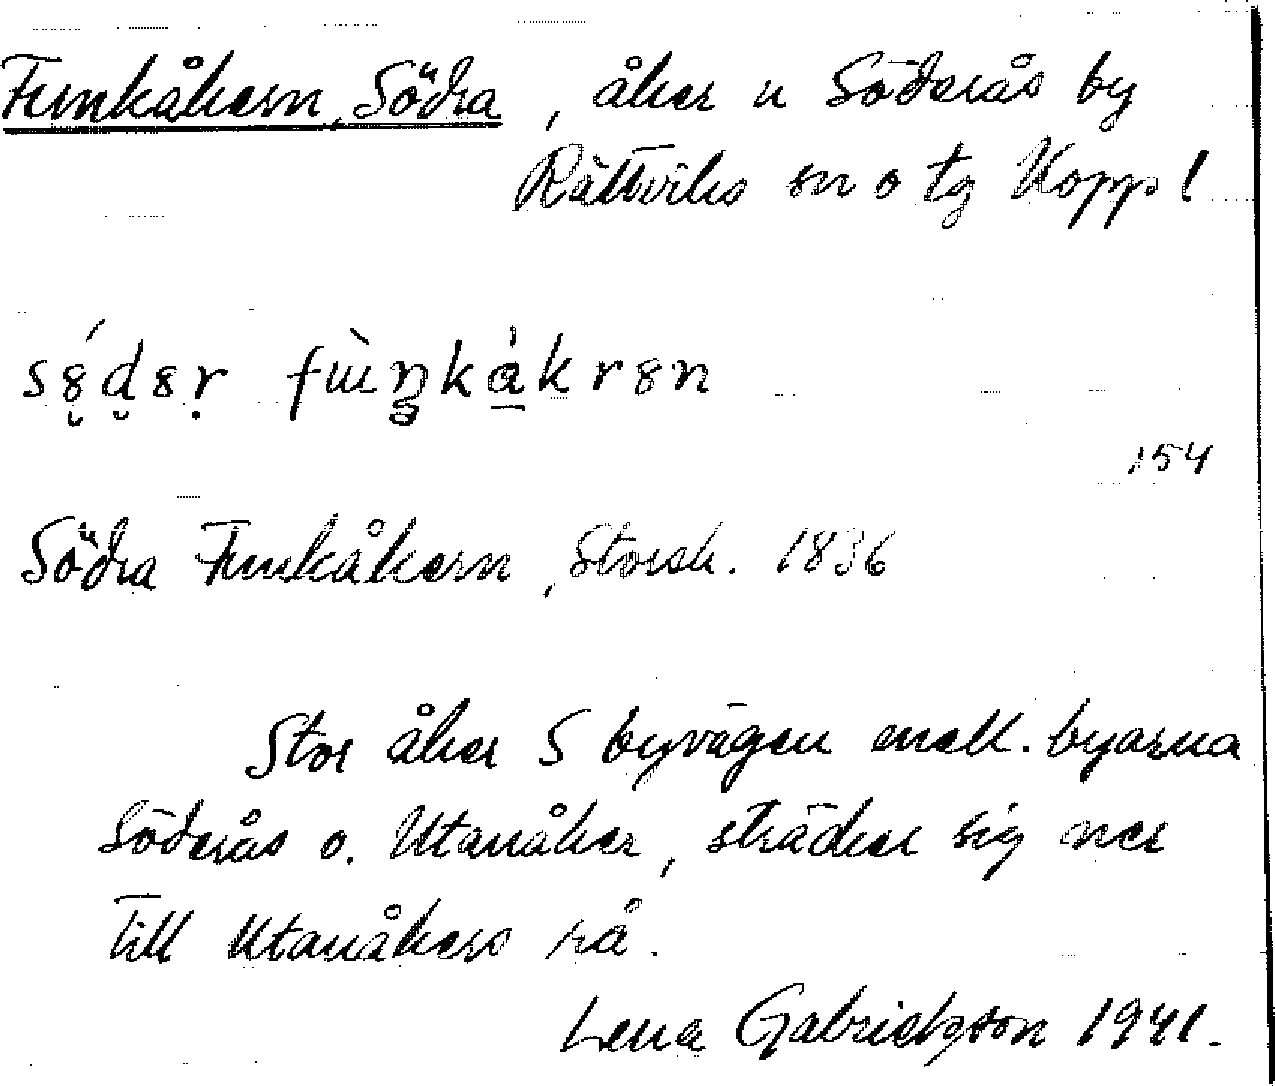 Funkåkern, Södra, åker u Söderås by
Rättviks sn o tg Kopp. l
154
Södra Funkåkern, Storsk. 1836
Stor åker S byvägen mell. byarna
Söderås o. Utanåker, sträcker sig ner
till Utanåkers rå.
Lena Gabrielsson 1941.